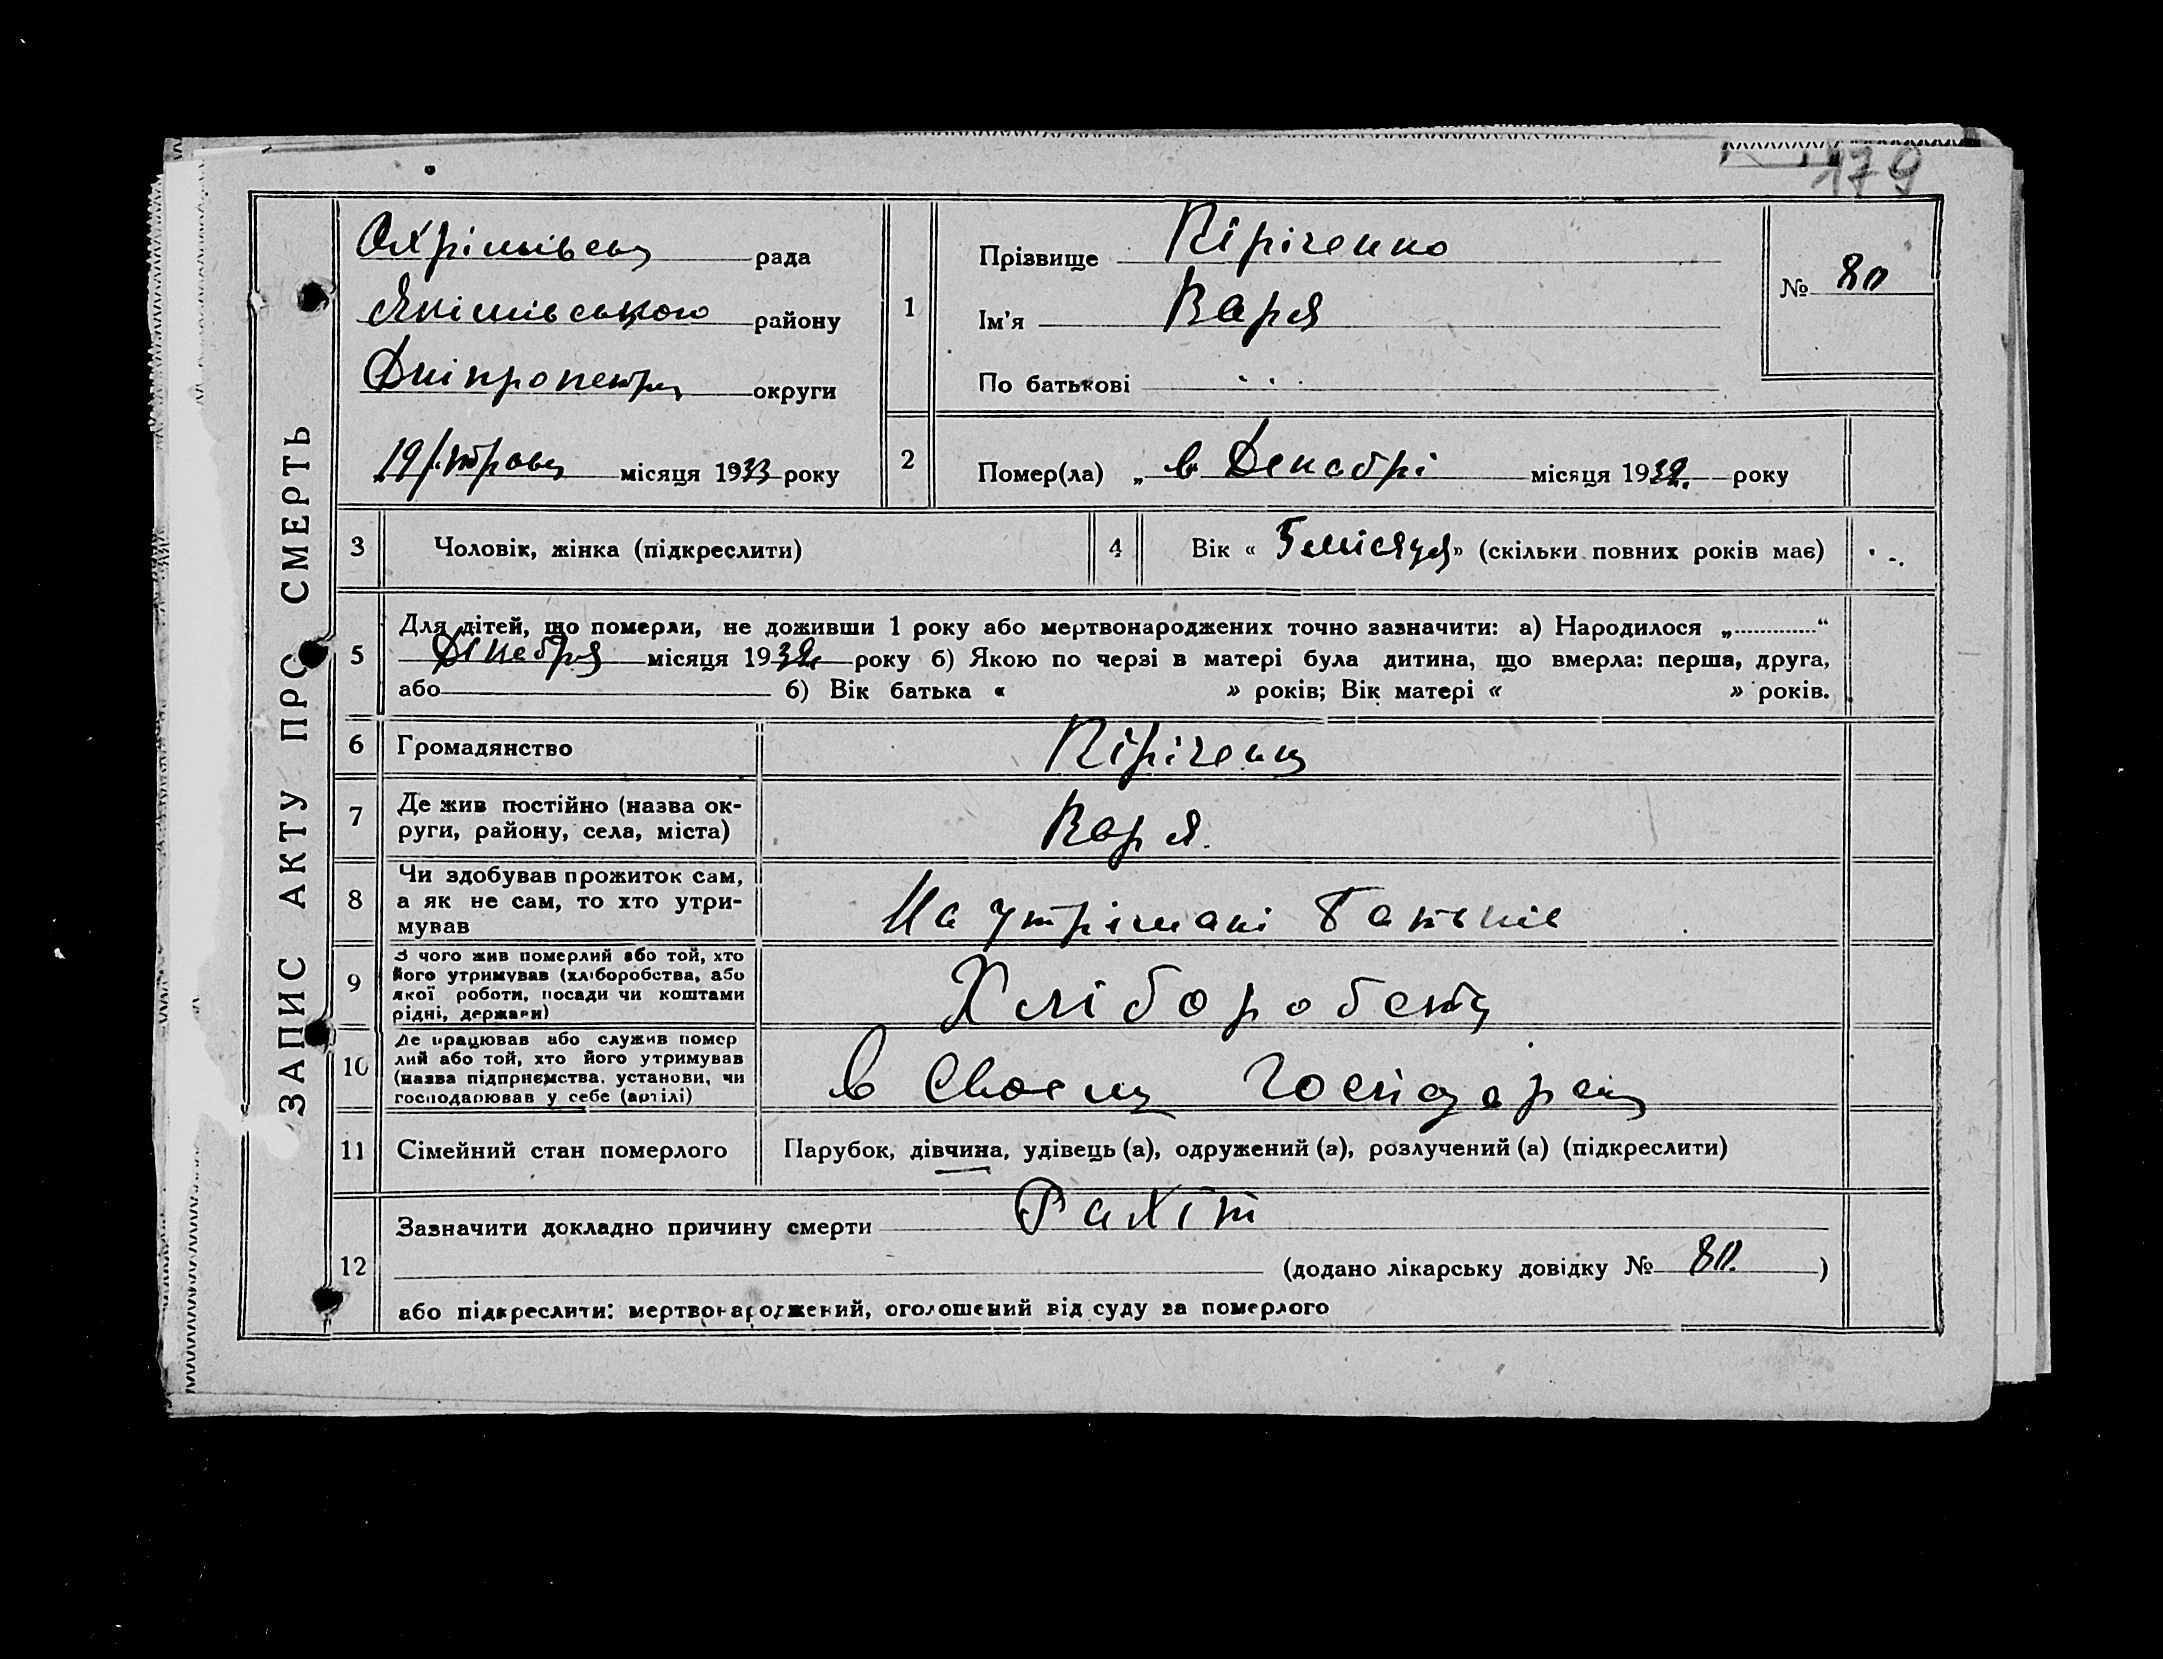 179
ЗАПИС АКТУ ПРО СМЕРТЬ
Охрімівськ рада
Якімівського району
Дніпропетр округи
19/травц місяця 1933 року
1
Прізвище Піріченко
Ім'я Варя
По батькові
№ 80
2
Помер(ла) „ в Декабрі місяця 1932. року
3 Чоловік, жінка (підкреслити)
4 Вік « 5 місяця » (скільки повних років має)
5 Для дітей, що померли, не доживши 1 року або мертвонароджених точно зазначити: а) Народилося „ “
Декебря місяця 1932. року б) Якою по черзі в матері була дитина, що вмерла: перша, друга,
або б) Вік батька « » років; Вік матері « » років.
6 Громадянство Піріченц
7 Де жив постійно (назва ок-
руги, району, села, міста) Варя.
8 Чи здобував прожиток сам,
а як не сам, то хто утри-
мував На утрімані батьків
9 З чого жив померлий або той, хто
його утримував (хліборобства, або
якої роботи, посади чи коштами
рідні, держави) Хліборобств
10 Де працював або служив помер
лий або той, хто його утримував
(назва підприємства, установи, чи
господарював у себе (артілі) в своєму господарсц
11 Сімейний стан померлого Парубок, дівчина, удівець (а), одружений (а), розлучений (а) (підкреслити)
12 Зазначити докладно причину смерти Рахіт
(додано лікарську довідку № 80. )
або підкреслити: мертвонароджений, оголошений від суду за померлого